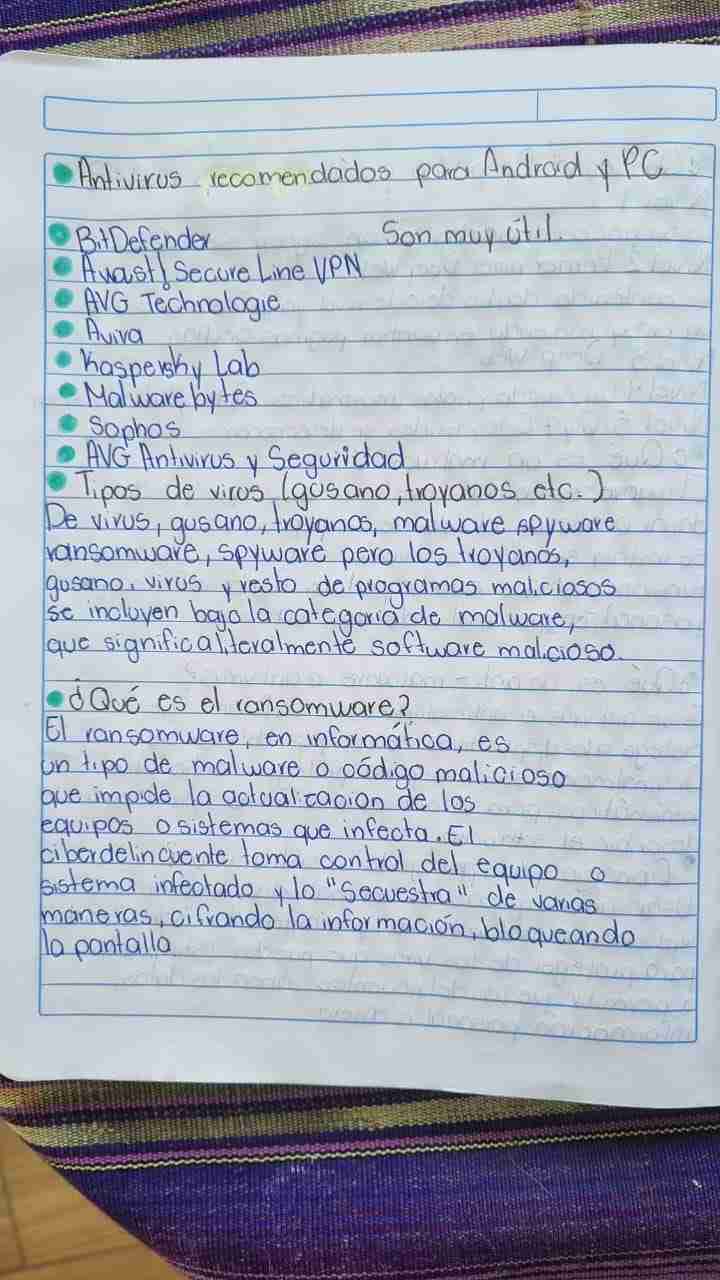 Antivirus recomendados para Android y PC
BitDefender Son muy útil.
Avast! Secure Line VPN
AVG Technologie
Avira
Kaspersky Lab
Malwarebytes
Sophos
AVG Antivirus y Seguridad
Tipos de virus (gusano, troyanos etc.)
De virus, gusano, troyanos, malware spyware
ransomware, spyware pero los troyanos,
gusano, virus y resto de programas maliciosos
se incluyen bajo la categoría de malware,
que significa literalmente software malicioso.
¿Qué es el ransomware?
El ransomware, en informática, es
un tipo de malware o código malicioso
que impide la actualización de los
equipos o sistemas que infecta. El
ciberdelincuente toma control del equipo o
sistema infectado y lo "secuestra" de varias
maneras, cifrando la información, bloqueando
la pantalla